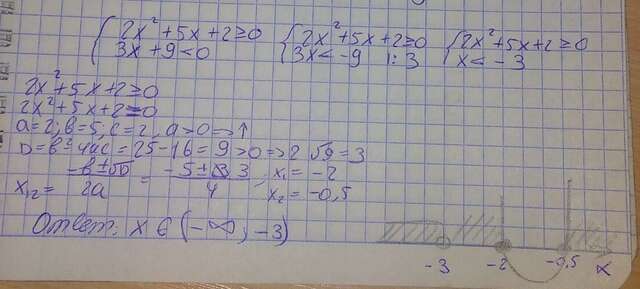 {2x²+5x+2≥0 {2x²+5x+2≥0 {2x²+5x+2≥0
3x+9<0 3x<-9 |:3 x<-3
2x²+5x+2≥0
2x²+5x+2=0
a=2; b=5; c=2, a>0=>↑
D=b²-4ac=25-16=9>0=>2 √9=3
x₁₂= (-b±√D)/2a = (-5±3)/4; x₁=-2
x₂=-0,5
Ответ: x∈(-∞; -3)
-3 -2 -0,5 x